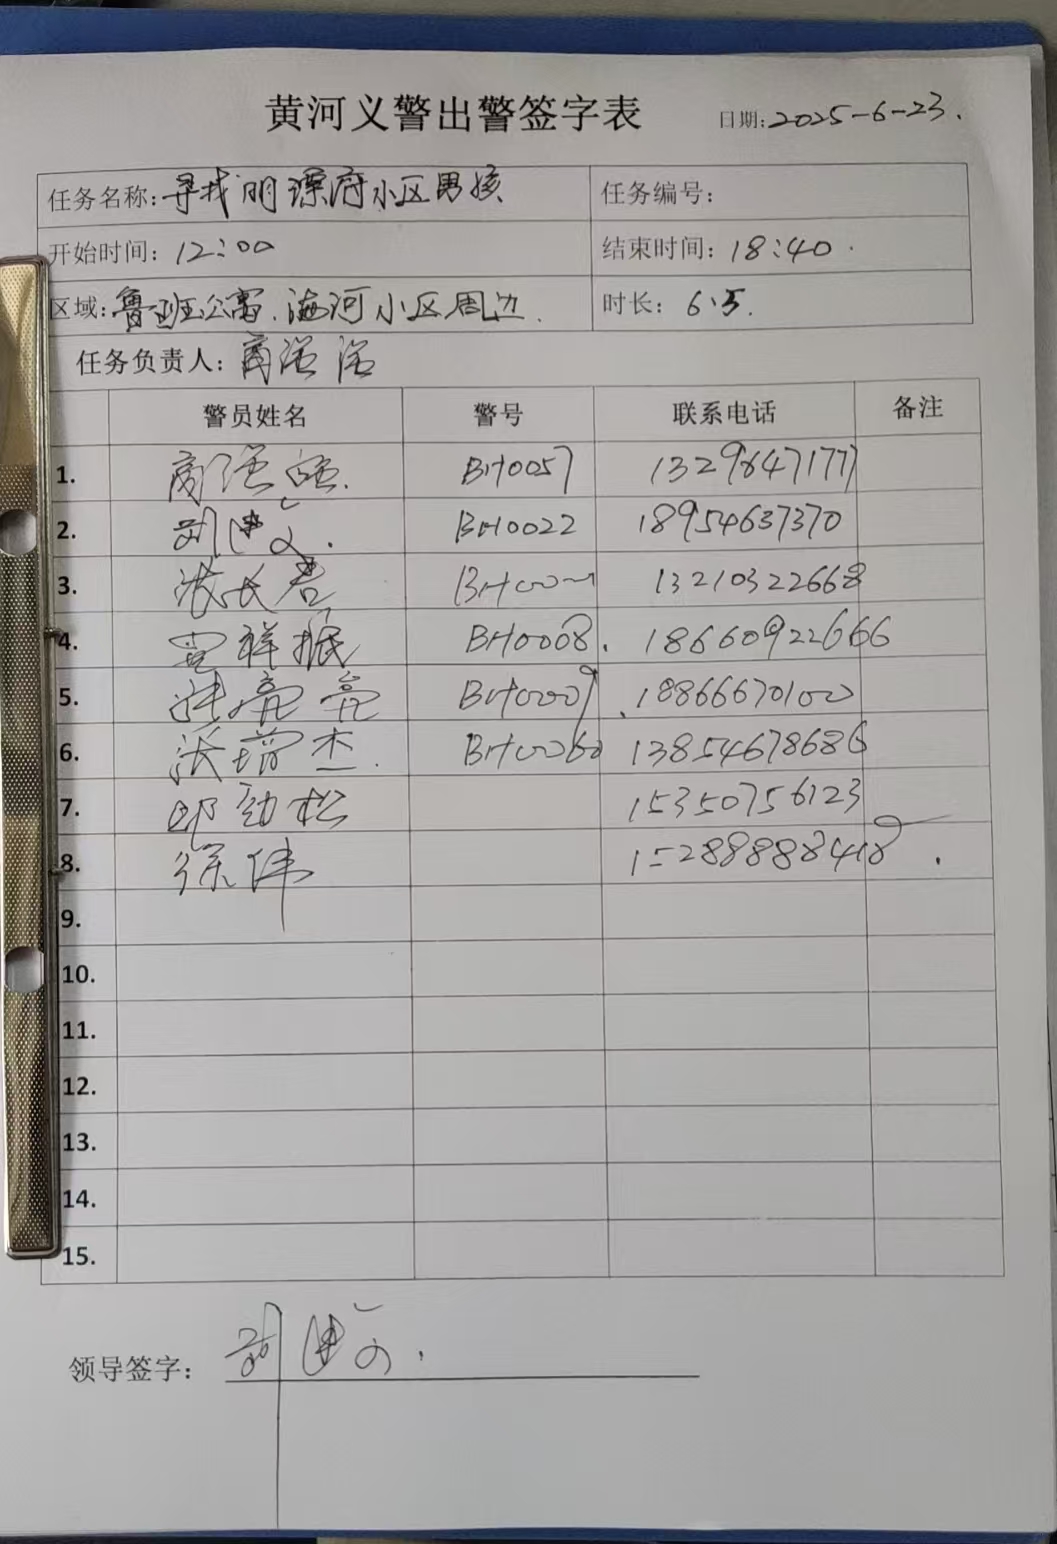 黄河义警出警签字表 日期:2025-6-23.
任务名称:寻找明璟府小区男孩 任务编号:
开始时间:12:00 结束时间:18:40
区域:鲁班公寓.海河小区周边. 时长:6.5.
任务负责人:商
警员姓名 警号 联系电话 备注
1. 商 BH0057 13298471777
2. 刘建文. BH0022 18954637370
3. 长君 13210322668
4. 祥振 BH0008. 18660922666
5. 张亮亮 BH0009 18866670100
6. 张增杰. BH0060 13854678686
7. 邱劲松 15350756123
8. 徐伟 15288888418.
9.
10.
11.
12.
13.
14.
15.
领导签字: 刘建文.